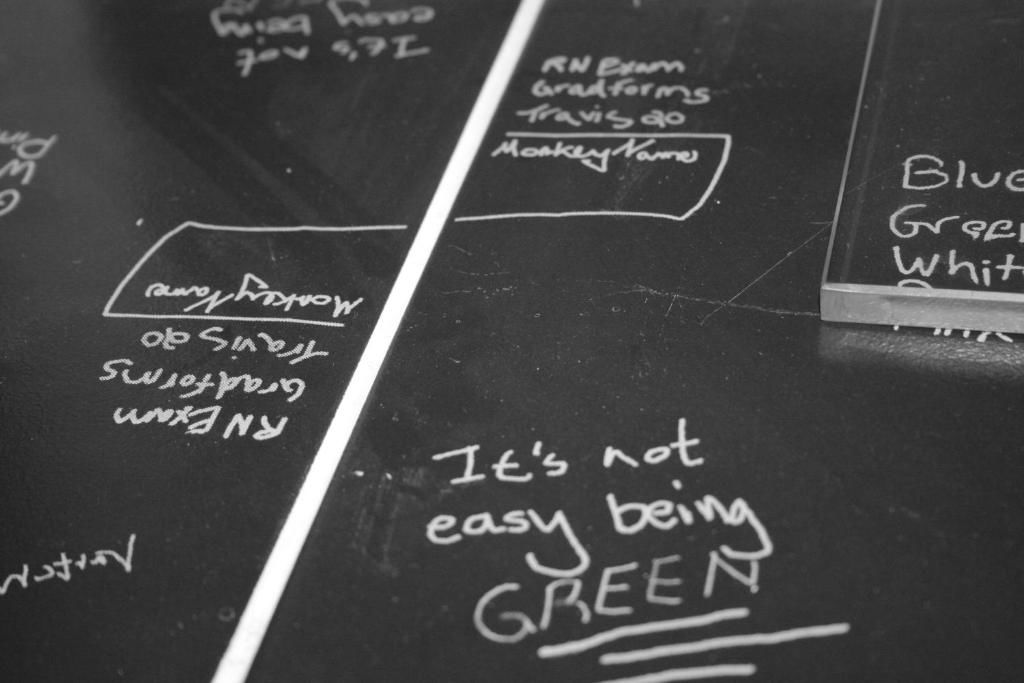 RN Exam
Gradforms
Travis 20
MonkeyName
Blue
Green
White
Pink
It's not
easy being
GREEN
It's not
easy being
MonkeyName
Travis 20
Gradforms
RN Exam